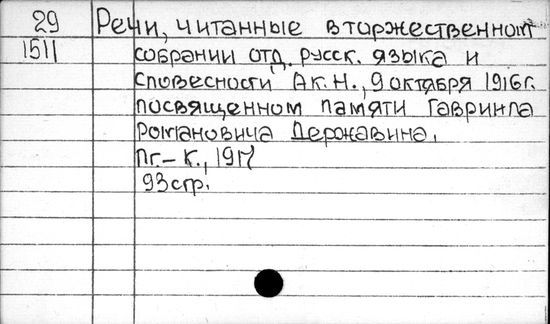 29 Речи, читанные в торжественном
1511 собрании отд. русск. языка и
словесности Ак. Н., 9 октября 1916г.
посвященном памяти Гавриила
Романовича Державина.
Пг. – К., 1917
93 стр.